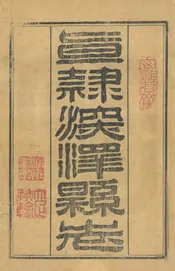 直隸深澤縣志